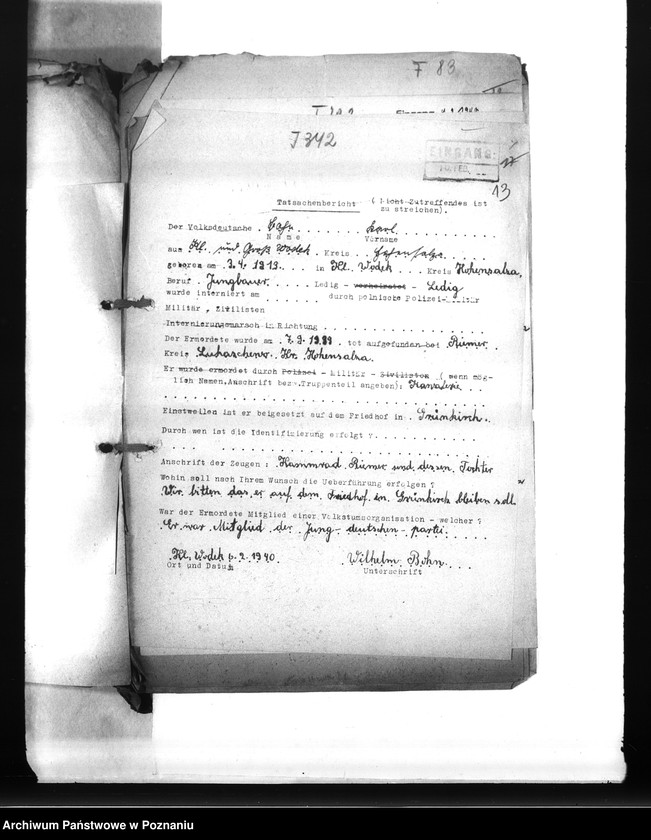 F 83
J 342
EINGANG
13
Tatsachenbericht ( Nicht Zutreffendes ist
zu streichen).
Der Volksdeutsche Karl
Name Vorname
aus Kl. und Groß Wodek Kreis
geboren am 3.4.1913. in Kl. Wodek Kreis Hohensalza.
Beruf Jungbauer. Ledig - verheiratet - Ledig
wurde interniert am durch polnische Polizei-Militär
Militär, Zivilisten
Internierungsmarsch in Richtung
Der Ermordete wurde am 7.9.1939. tot aufgefunden bei Rümer.
Kreis Kr. Hohensalza.
Er wurde ermordet durch Polizei - Militär - Zivilisten ( wenn mög-
lich Namen, Anschrift bezw. Truppenteil angeben):
Einstweilen ist er beigesetzt auf dem Friedhof in Grünkirch.
Durch wen ist die Identifizierung erfolgt ?
Anschrift der Zeugen: Kammrad. Rümer und dessen Tochter
Wohin soll nach Ihrem Wunsch die Ueberführung erfolgen ?
Wir bitten das er auf dem Friedhof in Grünkirch bleiben soll
War der Ermordete Mitglied einer Volkstumsorganisation - welcher ?
Er war Mitglied der Jung-deutschen-partei.
Kl. Wodek 6.2.1940. Wilhelm Bohn
Ort und Datum Unterschrift
Archiwum Państwowe w Poznaniu